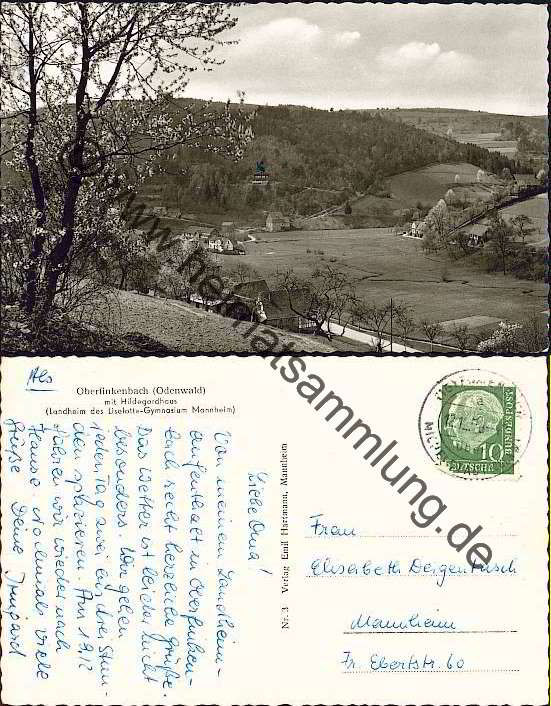 www.heimatsammlung.de
Als
Oberfinkenbach (Odenwald)
mit Hildegardhaus
(Landheim des Liselotte-Gymnasium Mannheim)
Liebe Oma!
Von meinem Landheim-
aufenthalt in Oberfinken-
bach recht herzliche Grüße.
Das Wetter ist leider nicht
besonders. Wir gehen
jeden Tag zwei bis drei Stun-
den spazieren. Am 19.12
fahren wir wieder nach
Hause. Nochmals viele
Grüße Deine Irmgard
Nr. 3 Verlag Emil Hartmann, Mannheim
10
DEUTSCHE
BUNDESPOST
Frau
Elisabeth
Mannheim
Fr. Ebertstr. 60